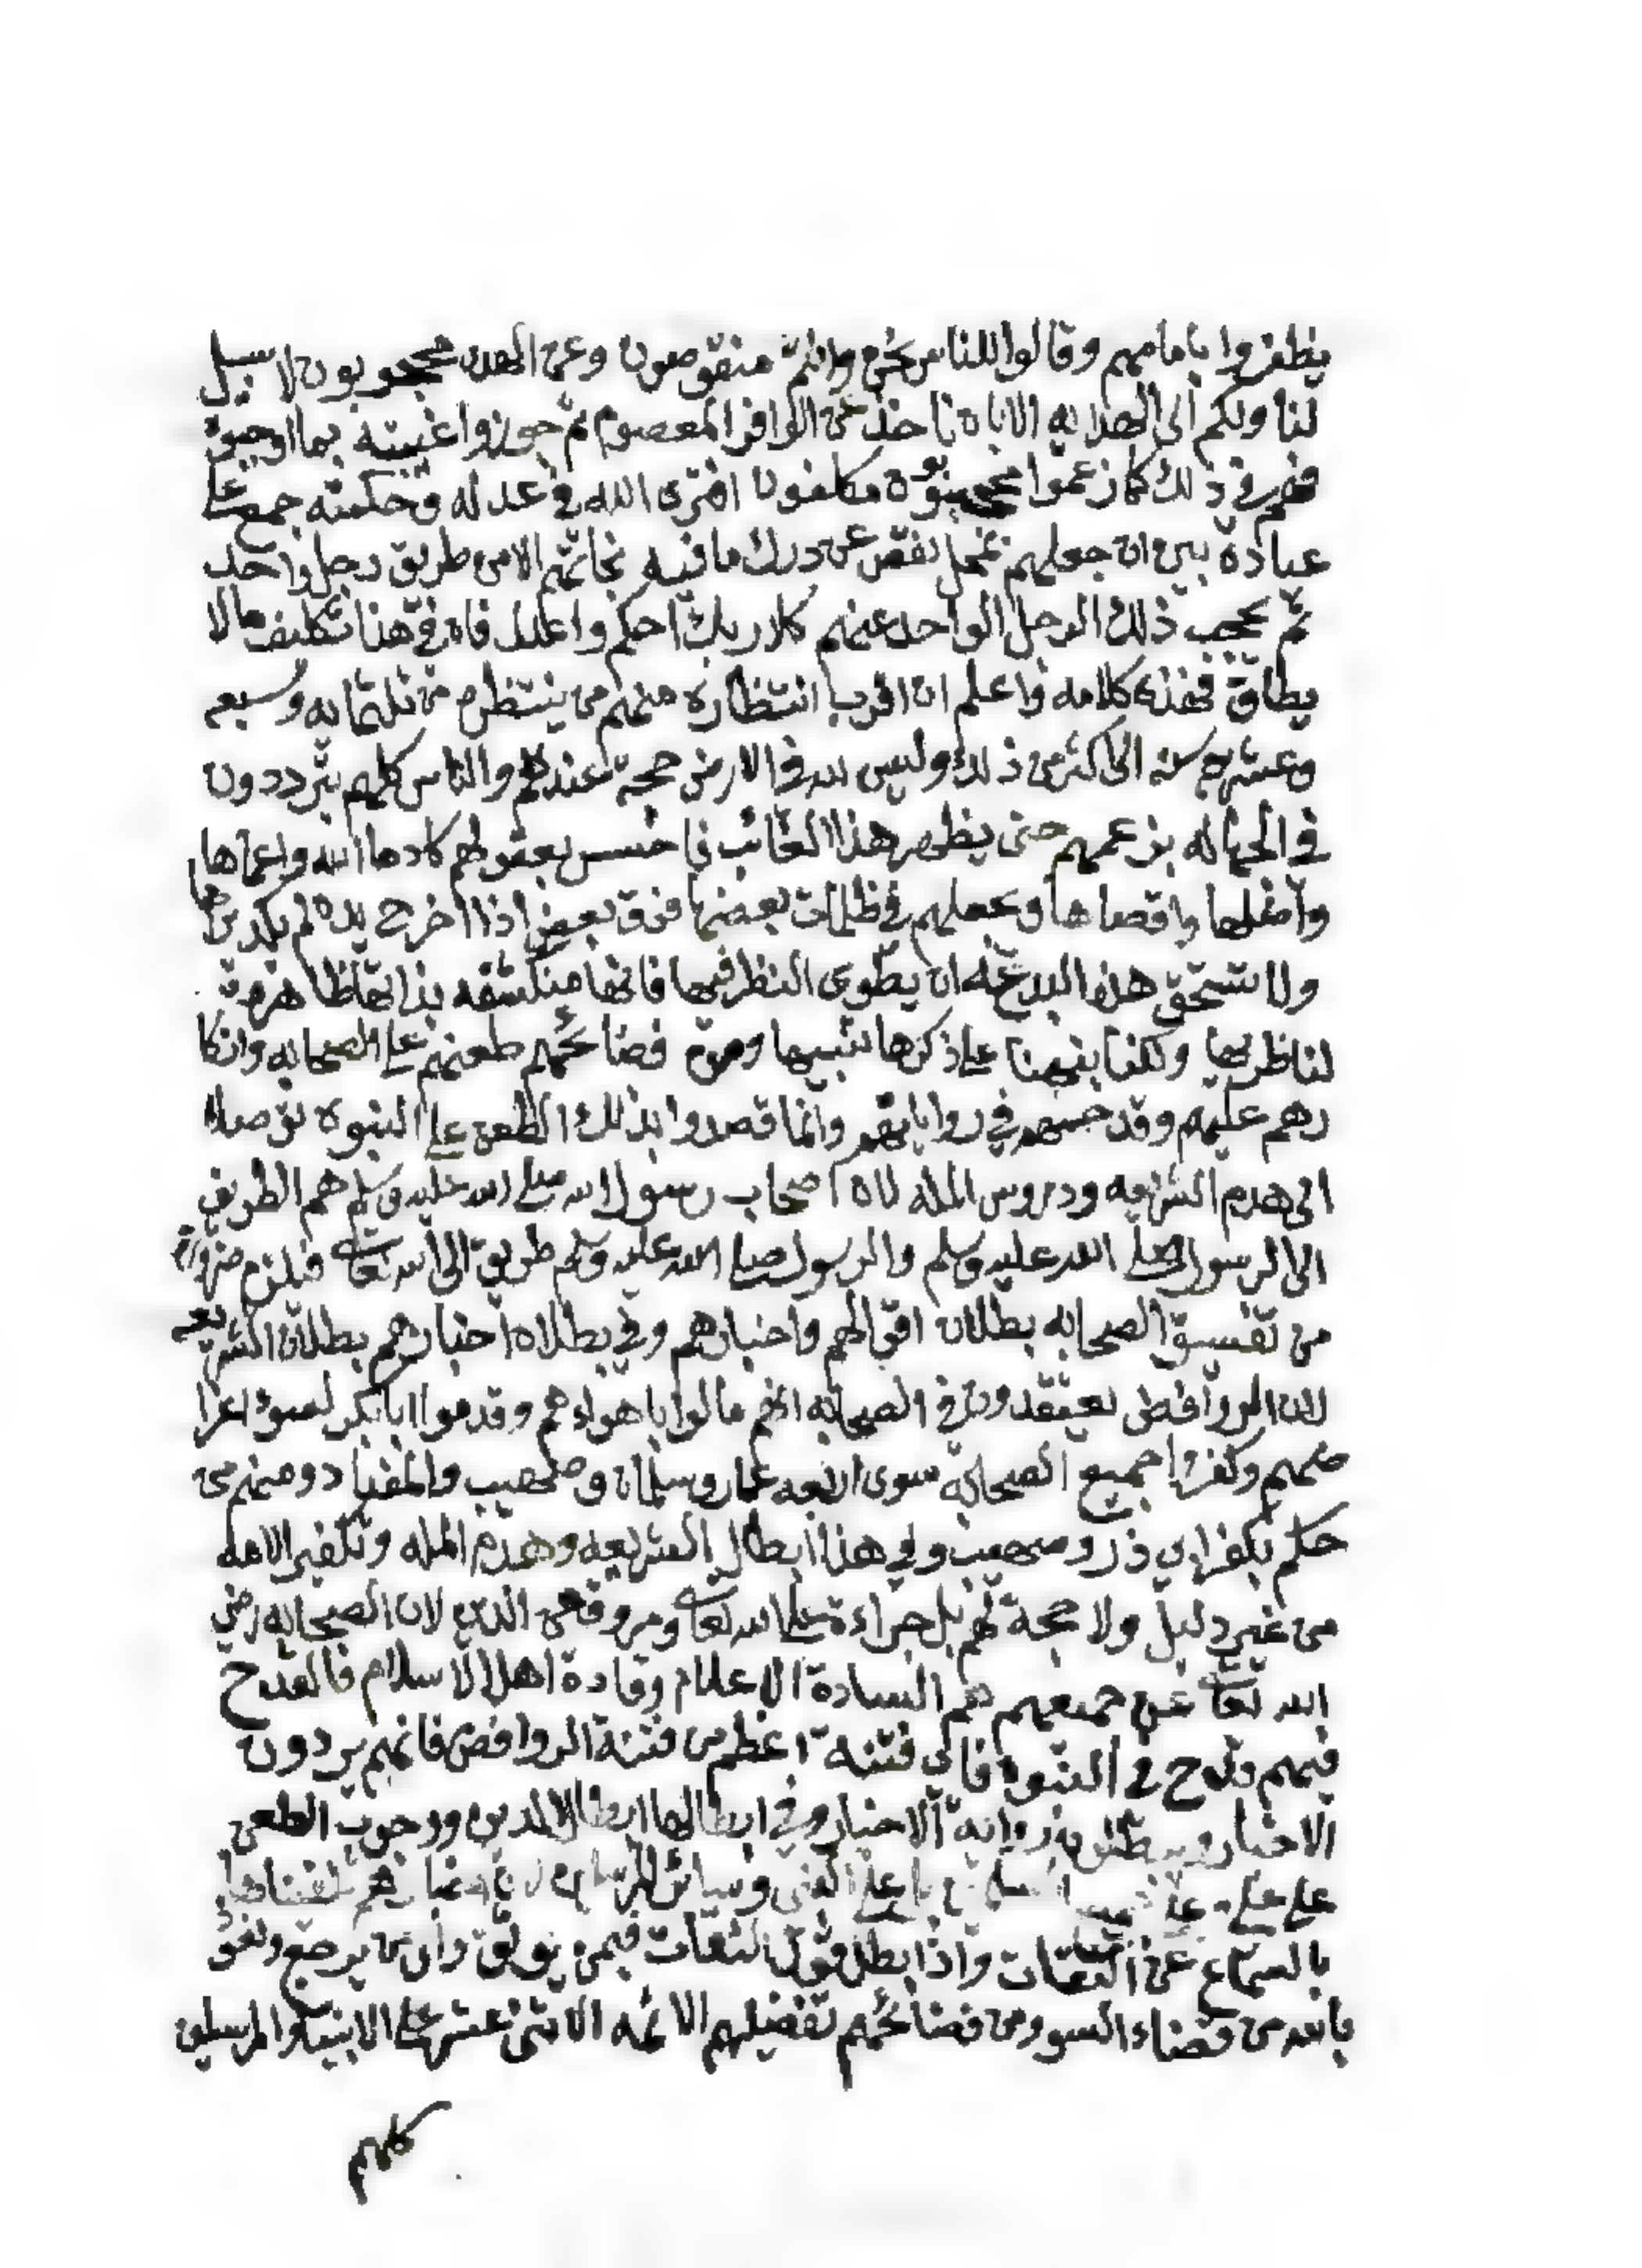 يظفروا بامامهم وقالوا للناس نحن وانتم منقوصون وعن الهدى محجوبون لا سبيل
لنا ولكم الى الهدايه الا بان ناخذ عن الوافر المعصوم ثم جوزوا غيبته بما اوجبو
فهم في ذلك كما زعموا محجوبون مكلفون افترى الله في عدله وحكمته جمع على
عباده بين ان جعلهم بمحل نقص عن درك ما فيه نجاتهم الا من طريق رجل واحد
ثم يحجب ذلك الرجل الواحد عنهم كلا ربك احكم واعدل فان في هذا تكليف ما لا
يطاق فهذه كلامه واعلم ان اقرب انتظاره منهم من ينتظره من ثلثمايه وسبعه
وعشرين سنه الى اكثر من ذلك وليس لله في الارض حجة عندكم والناس كلهم يترددون
في الجهاله بزعمهم حتى يظهر هذا الغائب فاخسس بعقولهم كادها الله واعماها
واضلها واقصاها وجعلهم في ظلمات بعضها فوق بعض اذا اخرج يده لم يكد يراها
ولا تستحق هذه البدعه ان يطوى النظر فيها فانها منكشفه بذاتها ظاهره
لناظريها ولكنا نبهنا على ذكرها تنبيها ومن فضائحهم طعنهم على الصحابه وانكا
رهم عليهم وقدحهم في رواياتهم وانما قصدوا بذلك الطعن على النبوه توصلا
الى هدم الشريعه ودروس المله لان اصحاب رسول الله صلى الله عليه وسلم هم الطريق
الى الرسول صلى الله عليه وسلم والرسول صلى الله عليه وسلم طريق الى الله تعالى فيلزم ضرورة
من تفسيق الصحابه بطلان اقوالهم واخبارهم وفي بطلان اخبارهم بطلان الشريعه
لان الروافض يعتقدون في الصحابه انهم مالوا باهواءهم وقدموا ابا بكر لسوء اغرا
منهم وكفروا جميع الصحابة سوى اربعه عمار وسلمان وصهيب والمقداد ومنهم من
حكم بكفر ابي ذر وصهيب وفي هذا ابطال الشريعه وهدم المله وتكفير الامه
من غير دليل ولا حجة لهم بل جراءة على الله تعالى ومروق من الدين لان الصحابه رضي
الله تعالى عن جميعهم هم السادة الاعلام وقادة اهل الاسلام فالقدح
فيهم قدح في النبوه فاي فتنه اعظم من فتنة الروافض فانهم يردون
الاخبار ويبطلون رواية الاخبار وفي ابطالها ابطال الدين ووجوب الطعن
على على النبي وسائر المرسلين لان اخبارهم
بالسماع عن الثقات واذا بطل قول الثقات فبمن يوثق والى من يرجع ونعوذ
بالله من قضاء السوء ومن فضائحهم تفضيلهم الائمه الاثني عشر على الانبياء والمرسلين
كلهم